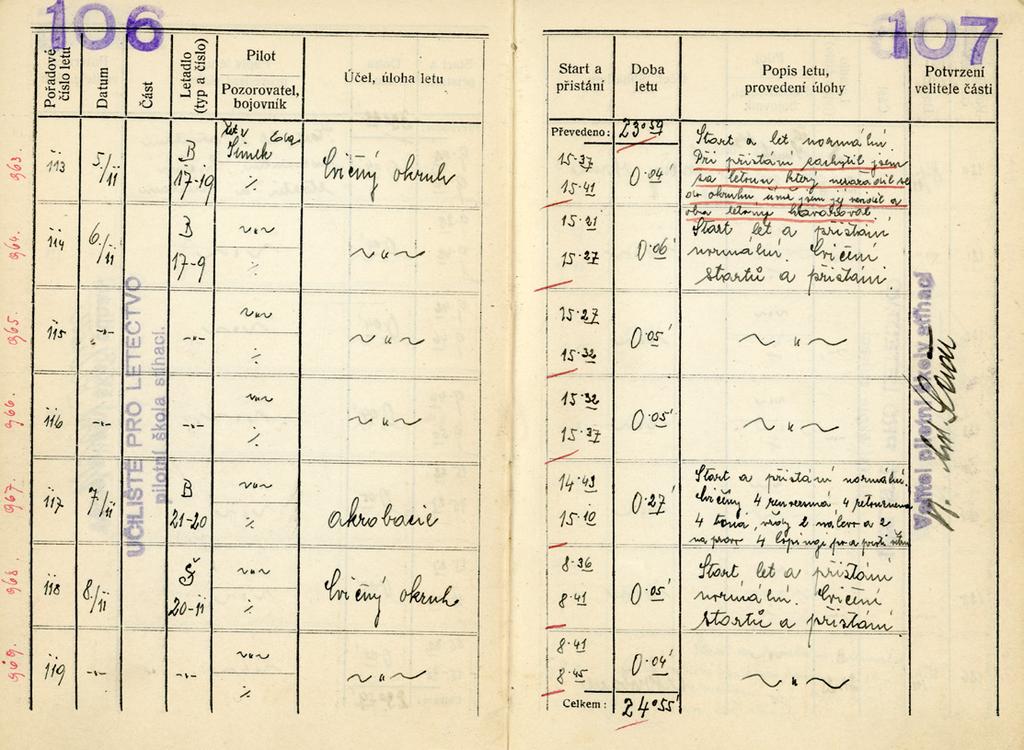 106
Pořadové číslo letu
Datum
Část
Letadlo (typ a číslo)
Pilot
Pozorovatel, bojovník
Účel, úloha letu
963.
113
5/II
B
17-19
Šimek
٪
Cvičný okruh
964.
114
6./II
B
17-9
~"~
٪
~"~
965.
115
-"-
-"-
~"~
٪
~"~
966.
116
-"-
-"-
~"~
٪
~"~
967.
117
7/II
B
21-20
~"~
٪
akrobacie
968.
118
8./II
Š
20-11
~"~
٪
Cvičný okruh
969.
119
-"-
~"~
٪
~"~
UČILIŠTĚ PRO LETECTVO
pilotní škola stíhací.
107
Start a přistání
Doba letu
Popis letu, provedení úlohy
Potvrzení velitele části
Převedeno:
23°59'
15·37
15·41
0·04'
Start a let normální.
Při přistání zachytil jsem
za letoun který nezařadil se
do okruhu, čímž jsem jej
oba letouny havaroval.
15·21
15·27
0·06'
Start let a přistání
normální. Cvičení
startů a přistání.
15·27
15·32
0·05'
~"~
15·32
15·37
0·05'
~"~
14·43
15·10
0·27'
Start a přistání normální.
4 4
4 2 nalevo a 2
napravo 4 lopingy po a proti větru
8·36
8·41
0·05'
Start let a přistání
normální. Cvičení
startů a přistání.
8·41
8·45
0·04'
~"~
Celkem:
24°55'
Velitel pilotní školy stíhací